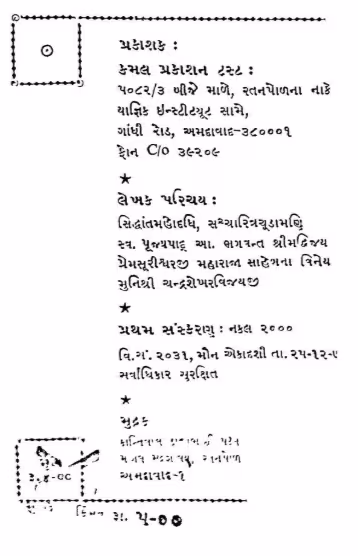 પ્રકાશક :
કમલ પ્રકાશન ટ્રસ્ટ :
૫૦૮૨/૩ બીજે માળે, રતનપોળના નાકે
યાજ્ઞિક ઇન્સ્ટીટ્યૂટ સામે,
ગાંધી રોડ, અમદાવાદ-૩૮૦૦૦૧
ફોન C/o ૩૯૨૦૯
★
લેખક પરિચય :
સિદ્ધાંતમહોદધિ, સચ્ચારિત્રચૂડામણિ
સ્વ. પૂજ્યપાદ્ આ. ભગવન્ત શ્રીમદ્વિજય
પ્રેમસૂરીશ્વરજી મહારાજા સાહેબના વિનેય
મુનિશ્રી ચન્દ્રશેખરવિજયજી
★
પ્રથમ સંસ્કરણ : નકલ ૨૦૦૦
વિ.સં. ૨૦૩૧, મૌન એકાદશી તા. ૨૫-૧૨-
સર્વાધિકાર સુરક્ષિત
★
મુદ્રક
કાન્તિલાલ પટેલ
મંગલ મુદ્રણાલય, રતનપોળ
અમદાવાદ-૧
કિંમત રૂા. ૫-૦૦